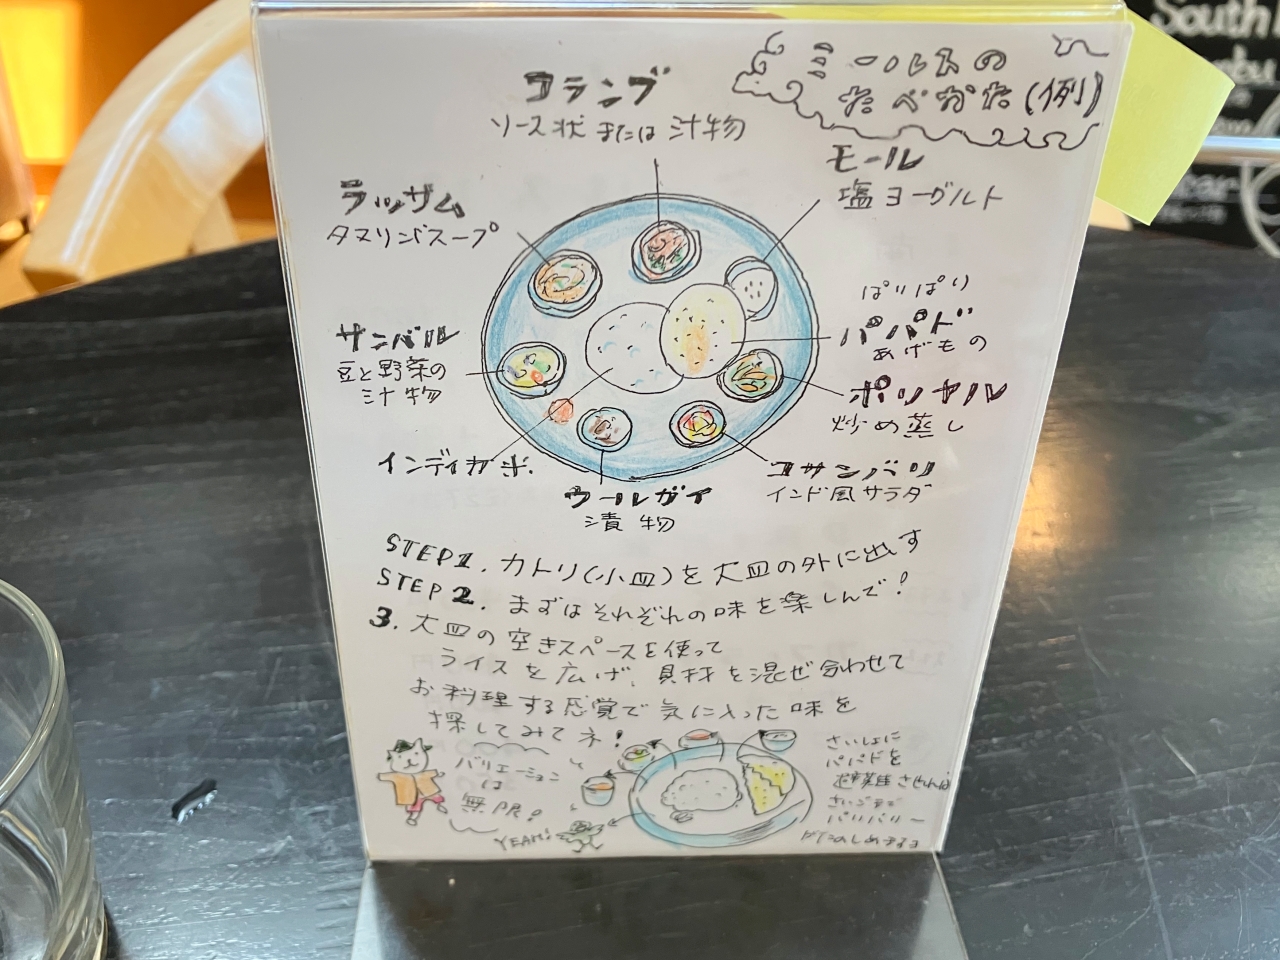 ミールスの
たべかた(例)
コランブ
ソース状または汁物
モール
塩ヨーグルト
ラッサム
タマリンドスープ
ぱりぱり
パパド
あげもの
サンバル
豆と野菜の
汁物
ポリヤル
炒め蒸し
インディカ米
ウールガイ
漬物
コサンバリ
インド風サラダ
STEP1. カトリ(小皿)を大皿の外に出す
STEP2. まずはそれぞれの味を楽しんで!
3. 大皿の空きスペースを使って
ライスを広げ、具材を混ぜ合わせて
お料理する感覚で気に入った味を
探してみてネ!
バリエーション
は
無限!
YEAH!
さいしょに
パパドを
避難させれば
さいごまで
パリパリー
がたのしめますヨ
South